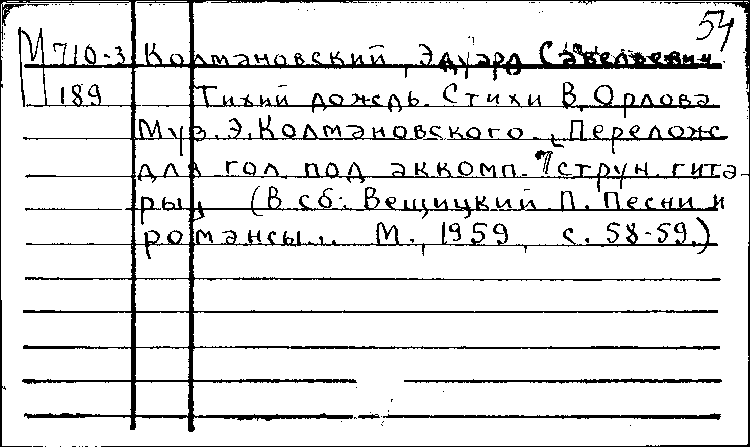 54
М 710-3 Колмановский, Эдуард Савельевич
189 Тихий дождь. Стихи В. Орлова
Муз. Э. Колмановского. [Перелож.
для гол. под аккомп. 7струн. гита-
ры] (В сб: Вещицкий П. Песни и
романсы... М., 1959, с. 58-59.)